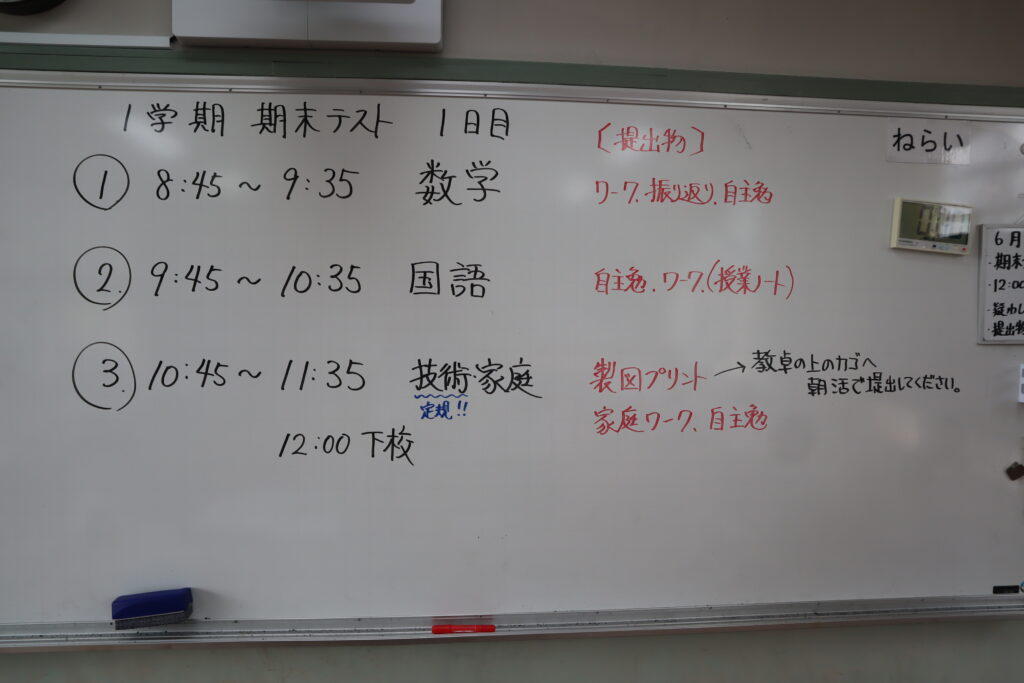 1学期 期末テスト 1日目
〔提出物〕
① 8:45～9:35 数学
ワーク、振り返り、自主勉
②. 9:45～10:35 国語
自主勉、ワーク、(授業ノート)
③. 10:45～11:35 技術家庭
定規!!
製図プリント→教卓の上のカゴへ
朝活で提出してください。
家庭ワーク、自主勉
12:00 下校
ねらい
6月
・期末
・12:00
・提出物